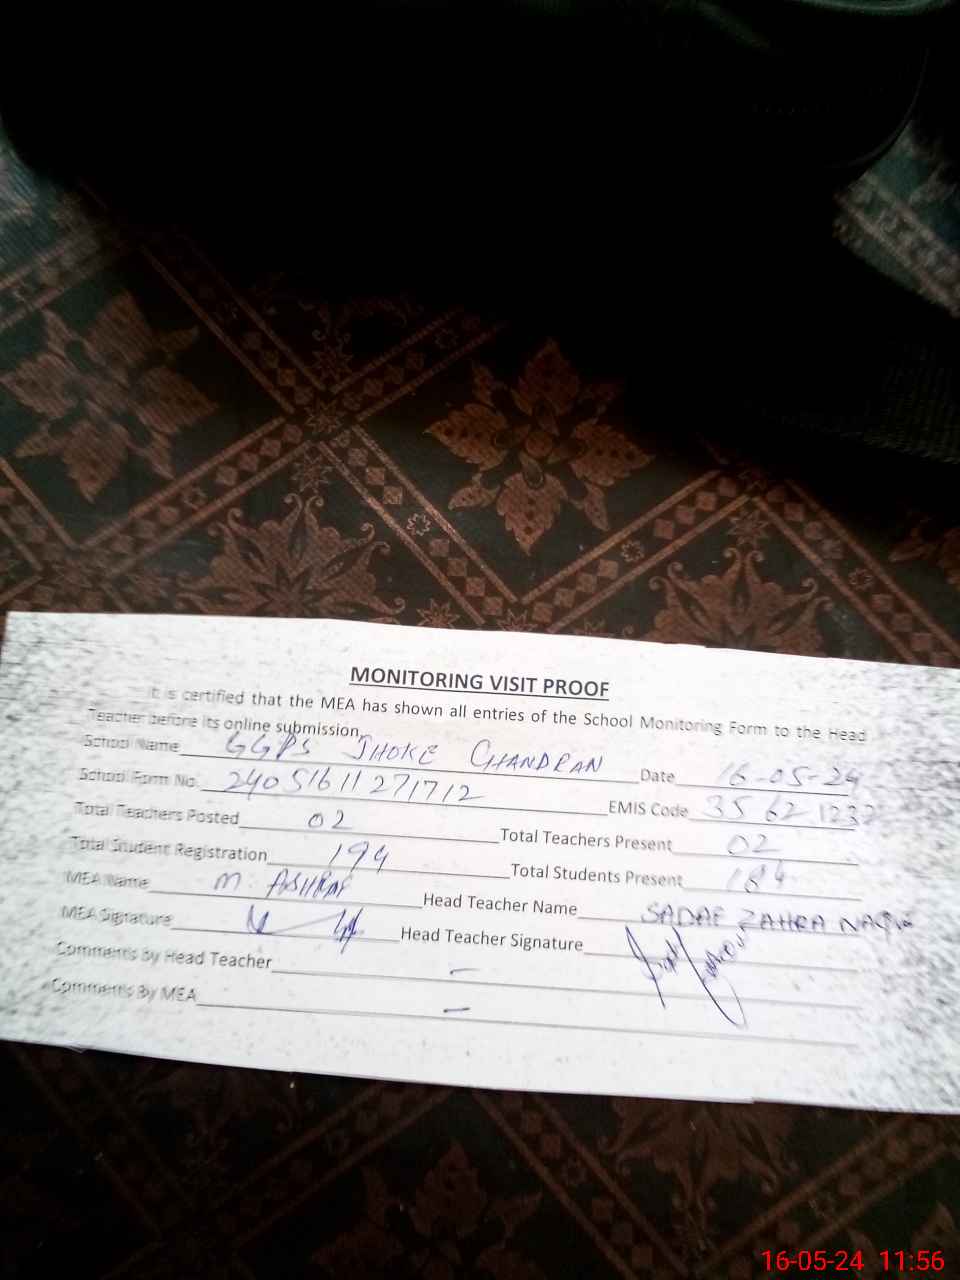 MONITORING VISIT PROOF
It is certified that the MEA has shown all entries of the School Monitoring Form to the Head
Teacher before its online submission.
School Name GGPS JHOKE CHANDRAN Date 16-05-24
School Form No. 24051611271712 EMIS Code 35621237
Total Teachers Posted 02 Total Teachers Present 02
Total Student Registration 194 Total Students Present 184
MEA Name M. ASHRAF Head Teacher Name SADAF ZAHRA NAQVI
MEA Signature Head Teacher Signature
Comments by Head Teacher -
Comments By MEA -
16-05-24 11:56